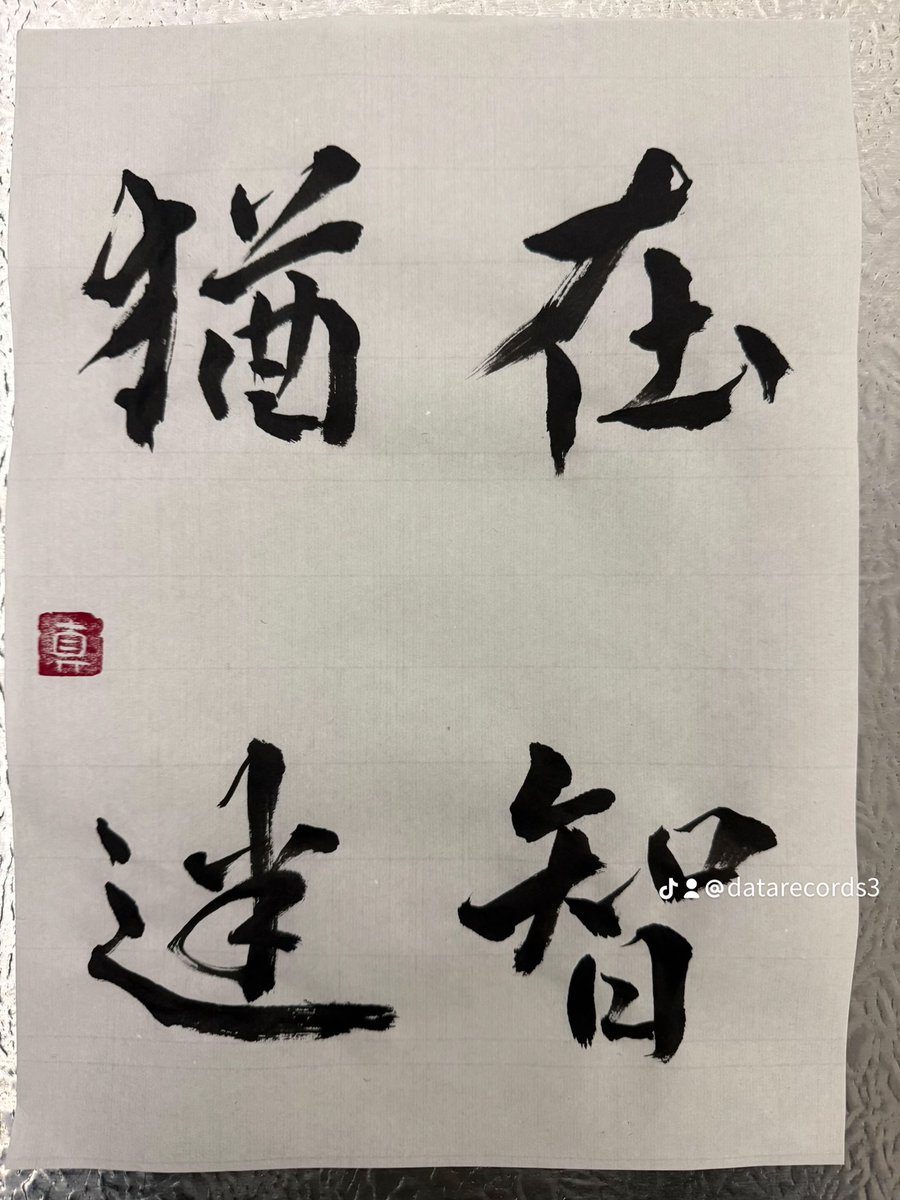 在智
猶迷
真
@datarecords3